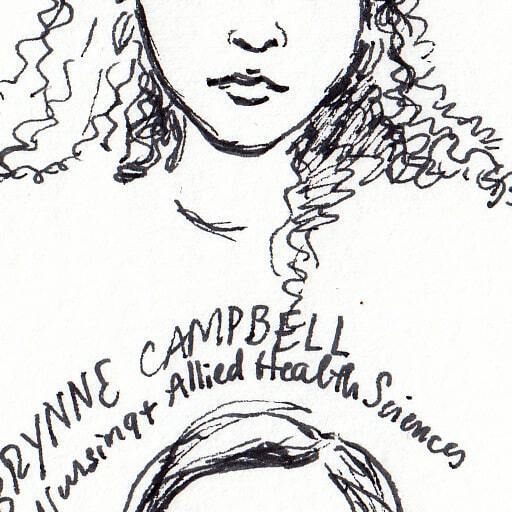 BRYNNE CAMPBELL
Nursing + Allied Health Sciences